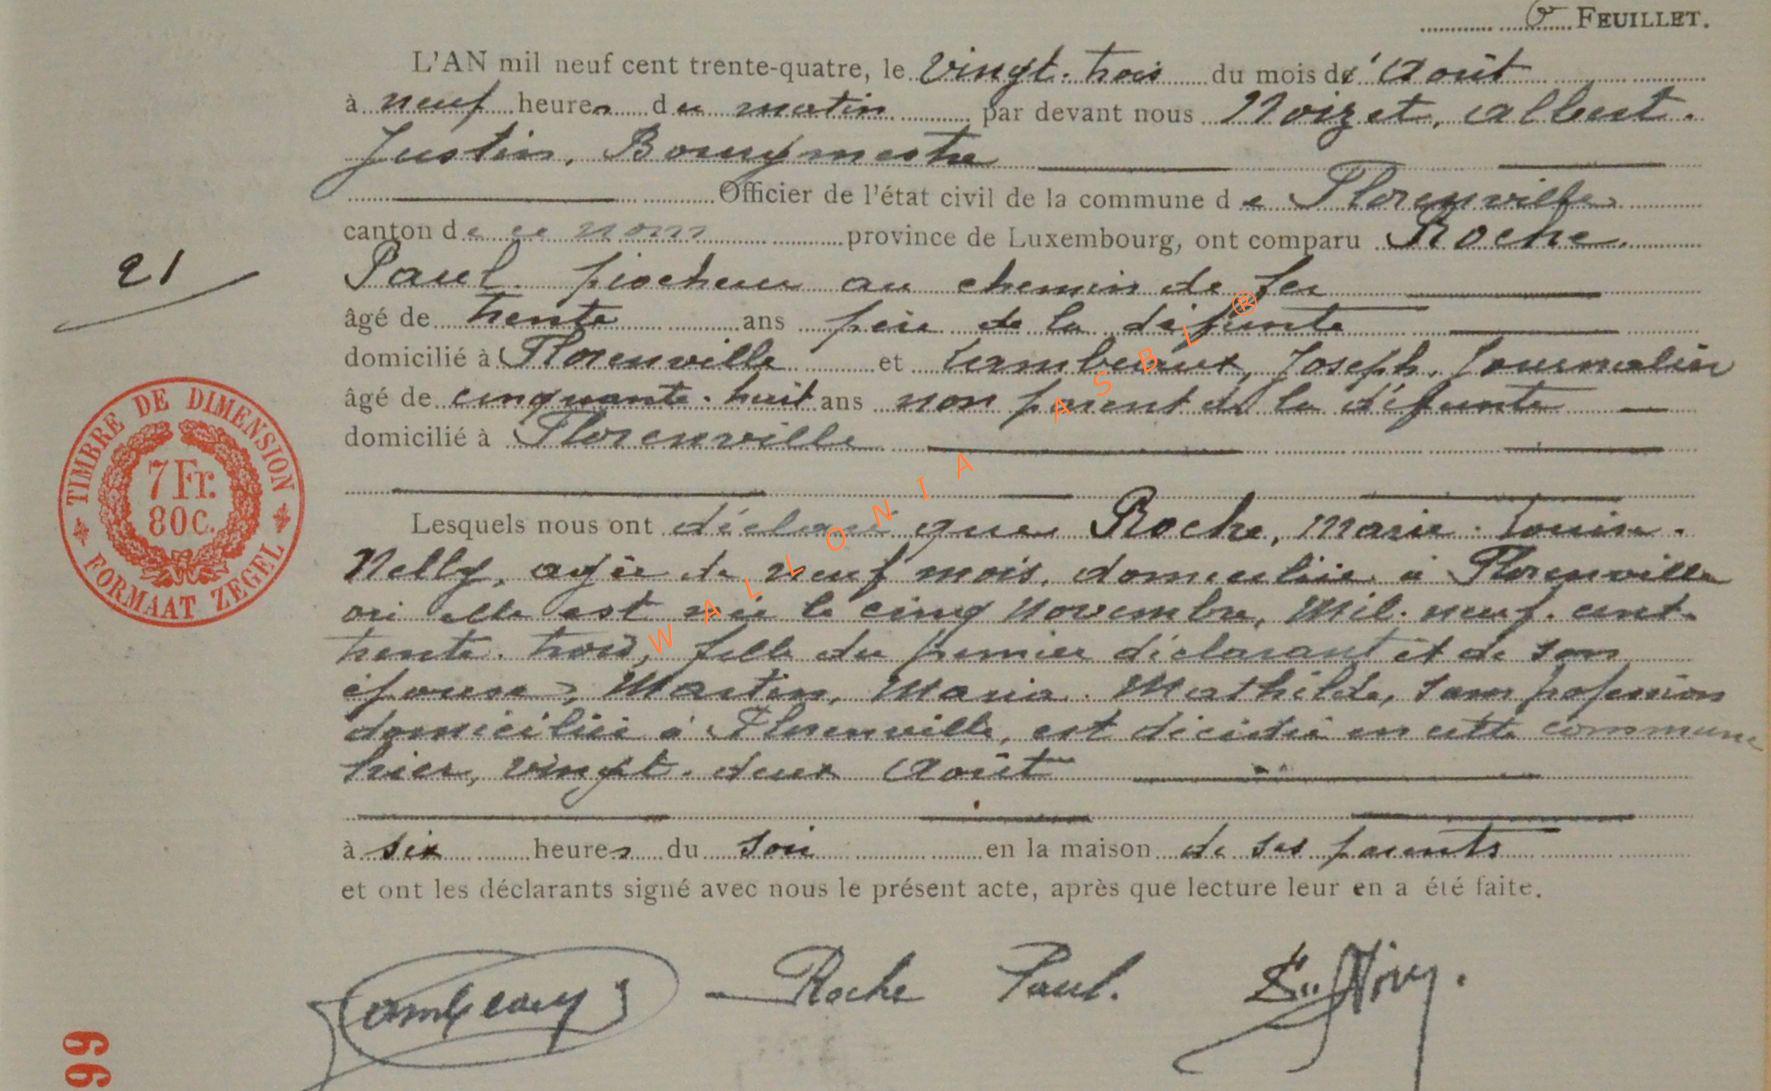 6 FEUILLET.
L'AN mil neuf cent trente-quatre, le vingt-trois du mois d'août
à neuf heures du matin par devant nous Noizet, Albert.
Justin, Bourgmestre
Officier de l'état civil de la commune de Florenville
canton de ce nom province de Luxembourg, ont comparu Roche
21
Paul. piocheur au chemin de fer
âgé de trente ans père de la défunte
domicilié à Florenville et Lambeaux, Joseph, Journalier
âgé de cinquante-huit ans non parent de la défunte
domicilié à Florenville
Lesquels nous ont déclaré que Roche, Marie-Louise-
Nelly, agée de neuf mois, domiciliée à Florenville
où elle est née le cinq Novembre, Mil-neuf-cent-
trente-trois, fille du premier déclarant et de son
épouse, Martin, Maria-Mathilde, sans profession
domiciliée à Florenville, est décédée en cette commune
hier, vingt-deux Août
à six heures du soir en la maison de ses parents
et ont les déclarants signé avec nous le présent acte, après que lecture leur en a été faite.
Lambeaux J Roche Paul.
TIMBRE DE DIMENSION
7 Fr.
80C.
FORMAAT ZEGEL
99
WALLONIA ASBL ®